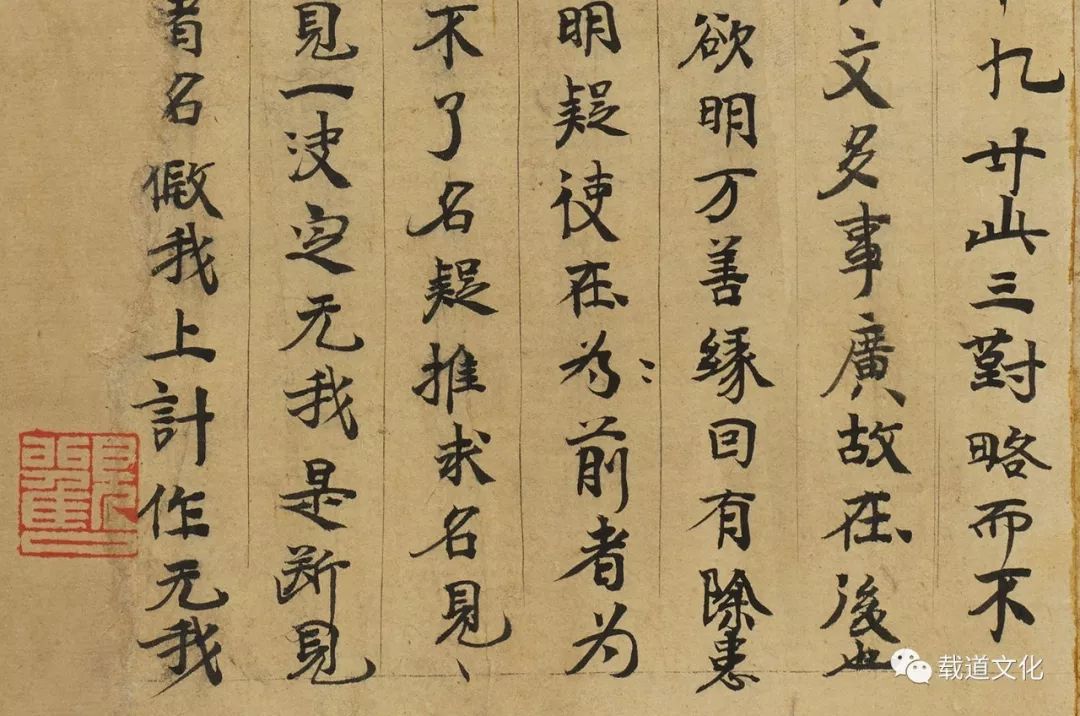 九廿此三對略而不
文多事廣故在後也
欲明万善緣囙有除患
明疑使在為〻前者為
不了名疑推求名見〻
見一决定无我是断見
者名假我上計作无我
载道文化